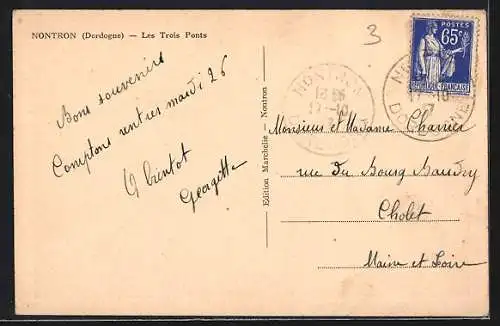 NONTRON (Dordogne) — Les Trois Ponts
3
POSTES
65c
REPUBLIQUE FRANÇAISE
NONTRON
17-10
DORDOGNE
Bons souvenirs
Comptons rentrer mardi 26
A bientot
Georgette
Edition Marchelie - Nontron
Monsieur et Madame Charrier
rue du Bourg Baudry
Cholet
Maine et Loire